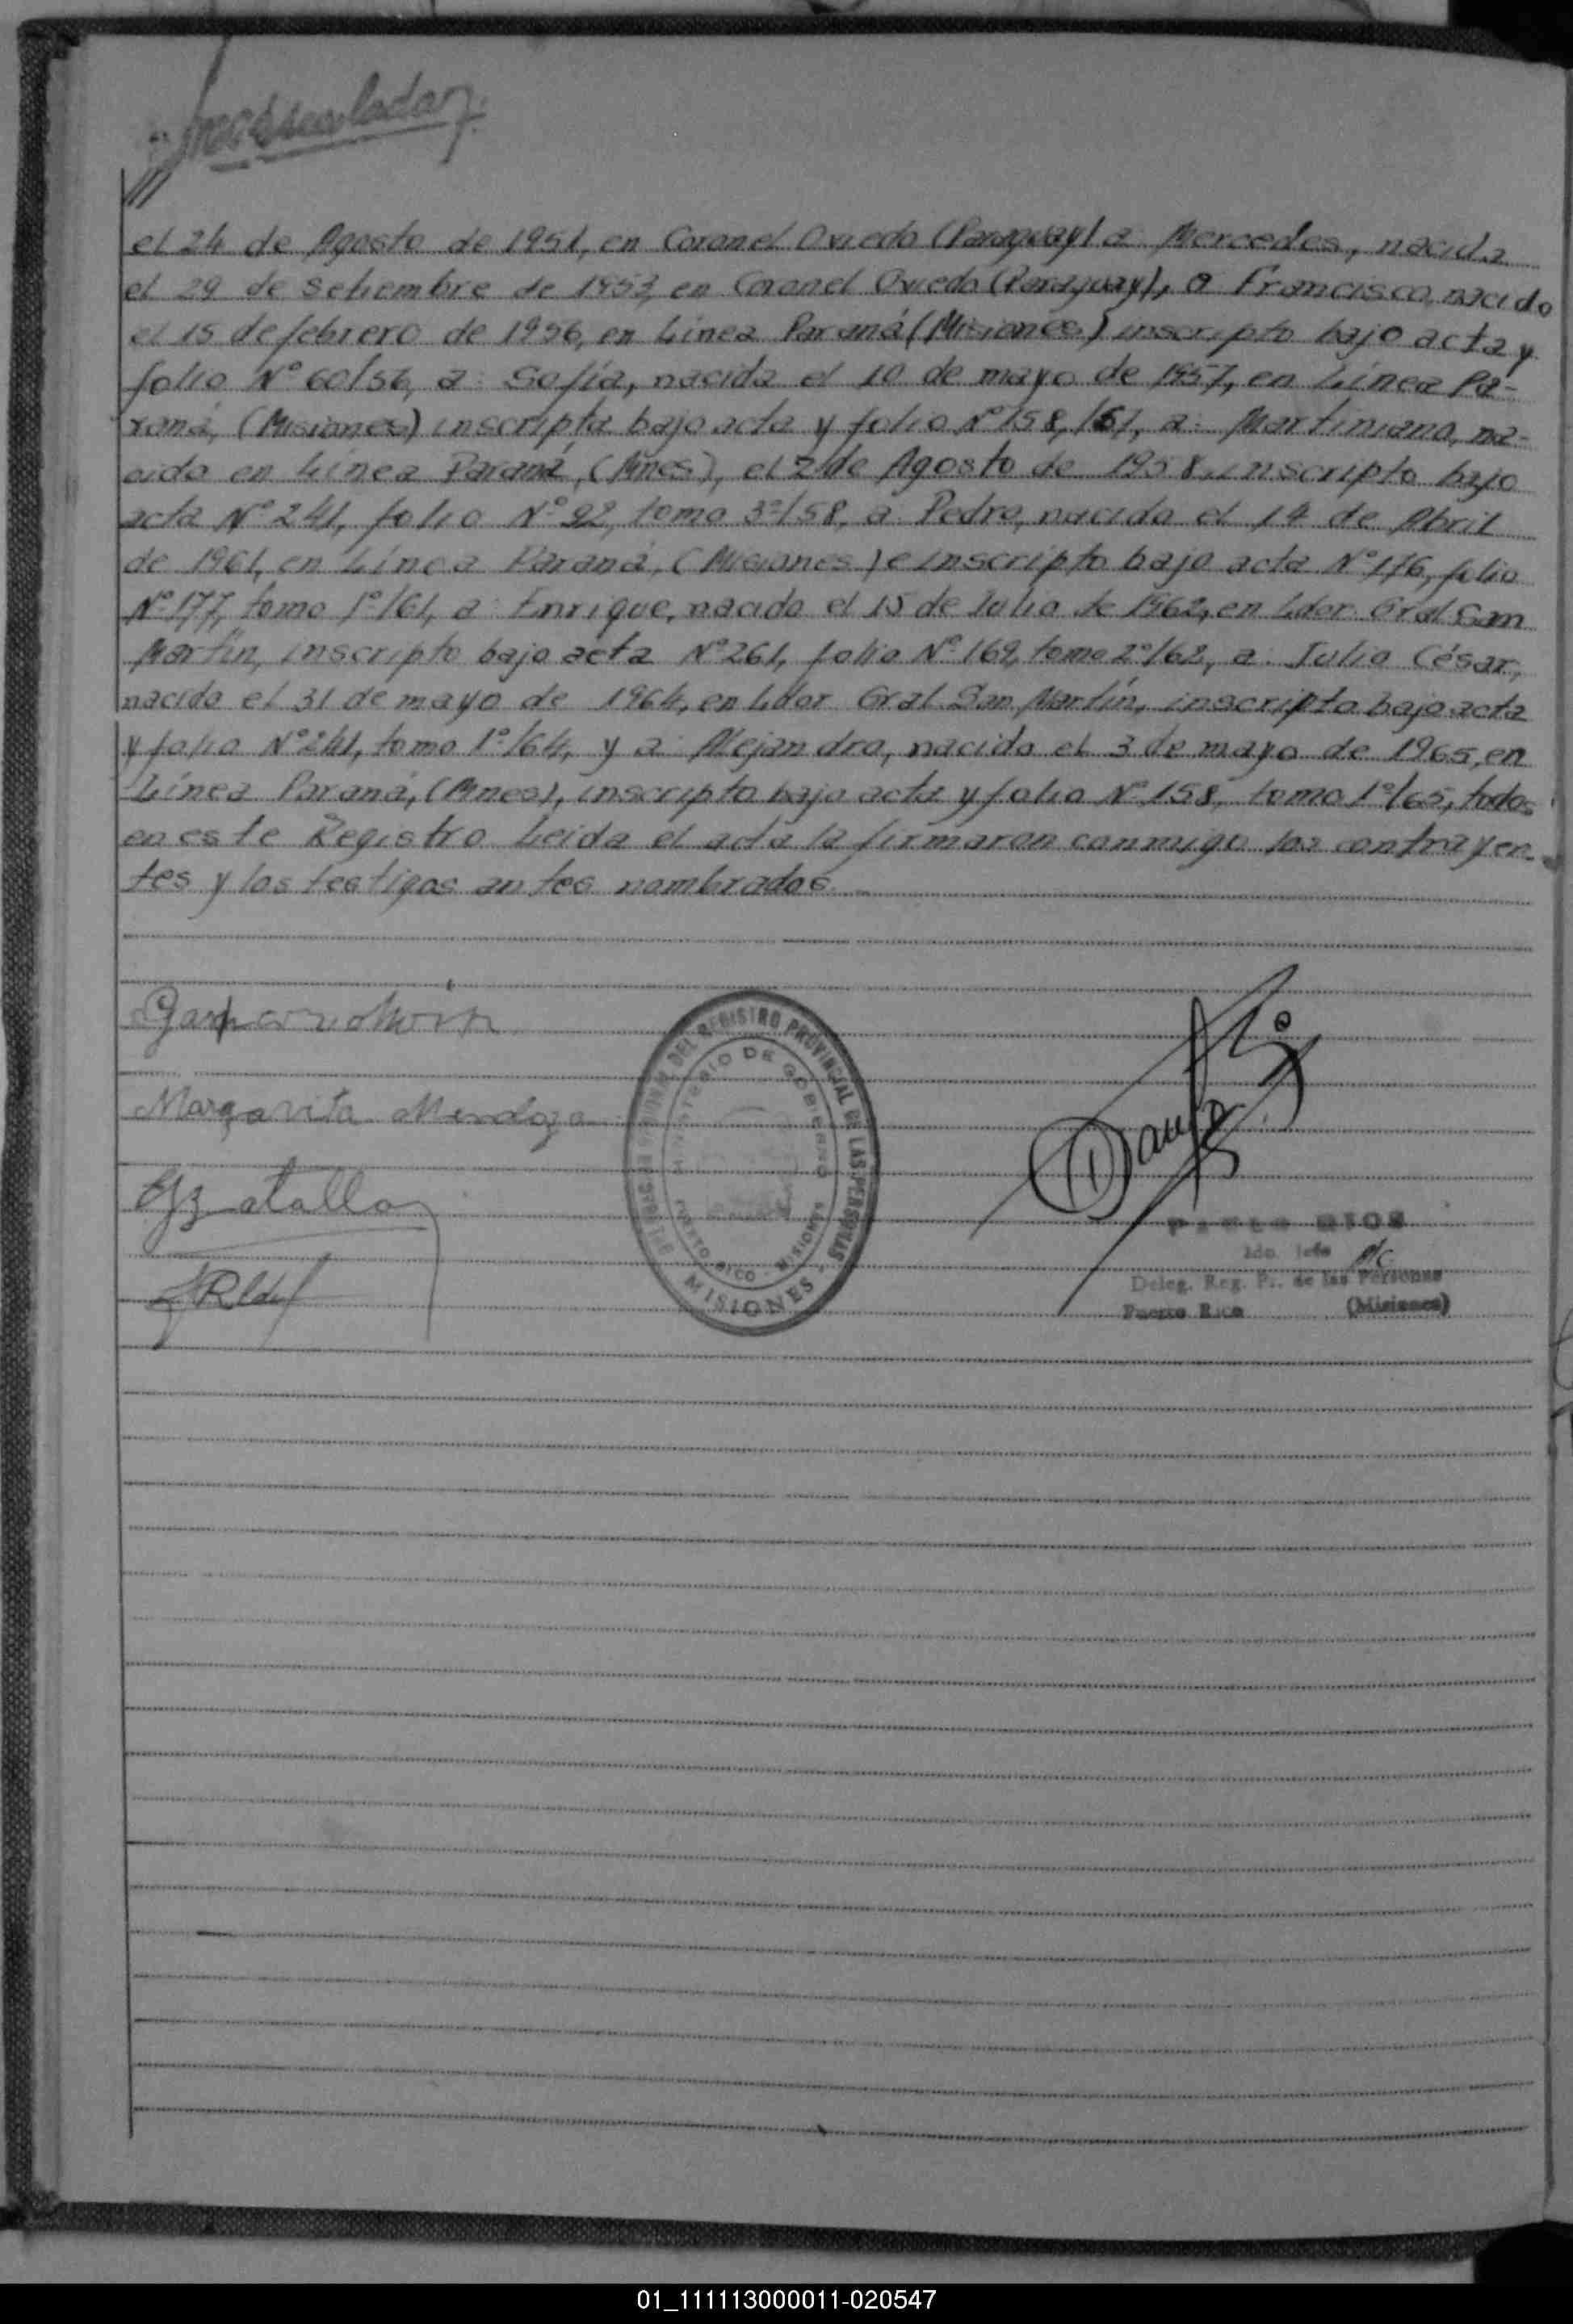 ///
el 24 de Agosto de 1951, en Coronel Oviedo (Paraguay) a: Mercedes, nacida
el 29 de Setiembre de 1953, en Coronel Oviedo (Paraguay), a Francisco, nacido
el 15 de febrero de 1956, en Línea Paraná (Misiones) inscripto bajo acta y
folio Nº 60/56, a: Sofía, nacida el 10 de mayo de 1957, en Línea Pa-
raná, (Misiones) inscripta bajo acta y folio Nº 158, /61, a: Martiniano, na-
cido en Línea Paraná, (Mnes), el 2 de Agosto de 1958, inscripto bajo
acta Nº 241, folio Nº 92, tomo 3º/58, a: Pedro, nacido el 14 de Abril
de 1961, en Línea Paraná, (Misiones) e inscripto bajo acta Nº 176, folio
Nº 177, tomo 1º/61, a: Enrique, nacido el 15 de Julio de 1962, en Ldor. Gral San
Martín, inscripto bajo acta Nº 261, folio Nº 169, tomo 2º/62, a: Julio César,
nacido el 31 de mayo de 1964, en Ldor Gral San Martín, inscripto bajo acta
y folio Nº 241, tomo 1º/64, y a: Alejandro, nacido el 3 de mayo de 1965, en
Línea Paraná, (Mnes), inscripto bajo acta y folio Nº 158, tomo 1º/65, todos
en este Registro Leida el acta la firmaron conmigo los contrayen-
tes y los testigos antes nombrados.
Margarita Mendoza
DEL REGISTRO PROVINCIAL DE LAS PERSONAS
MINISTERIO DE GOBIERNO
PUERTO RICO - MISIONES
MISIONES
PABLO RIOS
2do. Jefe A/C
Deleg. Reg. P.. de las Personas
Puerto Rico (Misiones)
01_111113000011-020547